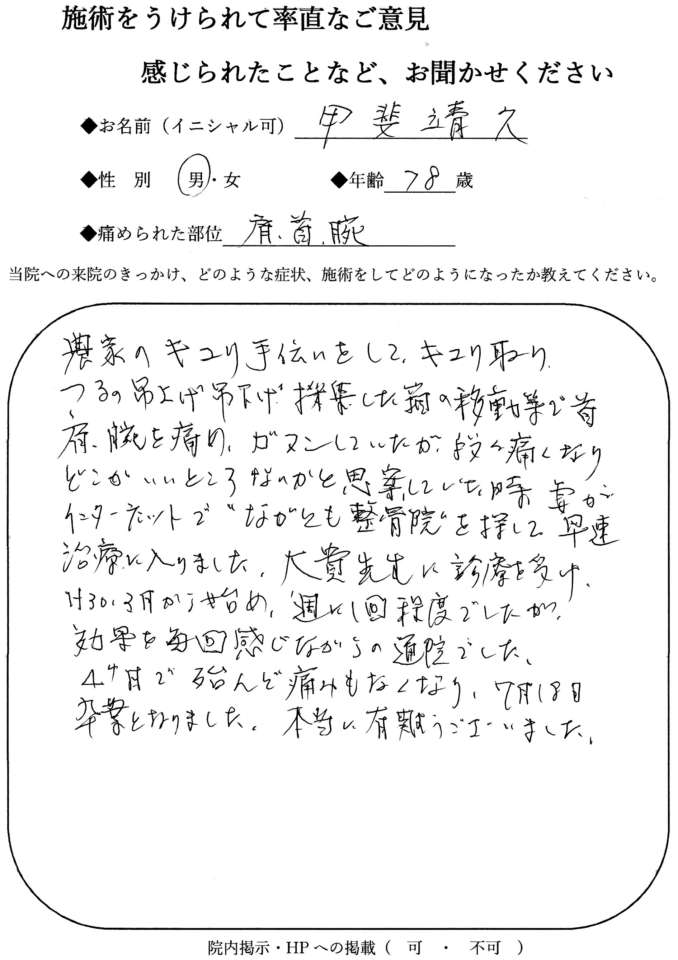 施術をうけられて率直なご意見
感じられたことなど、お聞かせください
◆お名前（イニシャル可） 甲斐靖久
◆性 別 男・女 ◆年齢 78 歳
◆痛められた部位 肩、首、腕
当院への来院のきっかけ、どのような症状、施術をしてどのようになったか教えてください。
農家のキュリ手伝いをして、キュリ取り、
つるの吊上げ吊下げ採集した
の移動等で首
肩、腕を痛め、ガマンしていたが、段々痛くなり
どこがいいところなのかと思案していた時、妻が
インターネットで“ながとも整骨院”を探して早速
治療に入りました。大貴先生に診療を受け、
H30.3月から始め、週に1回程度でしたが、
効果を毎回感じながらの通院でした。
4ヶ月で殆んど痛みもなくなり、7月18日
卒業となりました。本当に有難うございました。
院内掲示・HPへの掲載（ 可 ・ 不可 ）